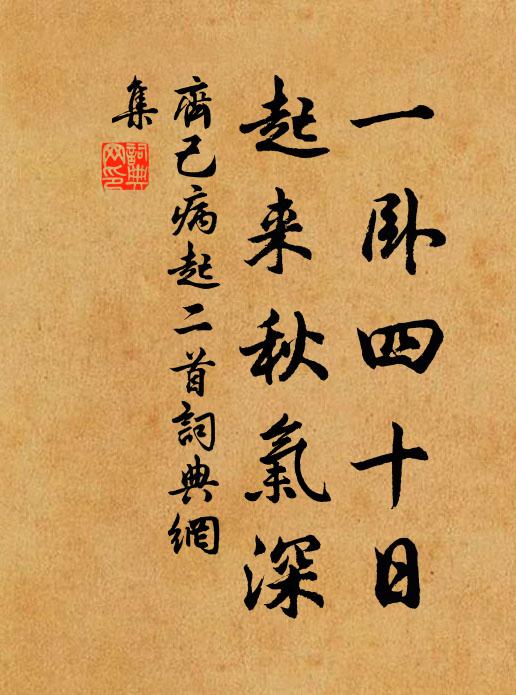 一卧四十日
起来秋氣深
齊己病起二首詞典網
集
詞典
网印